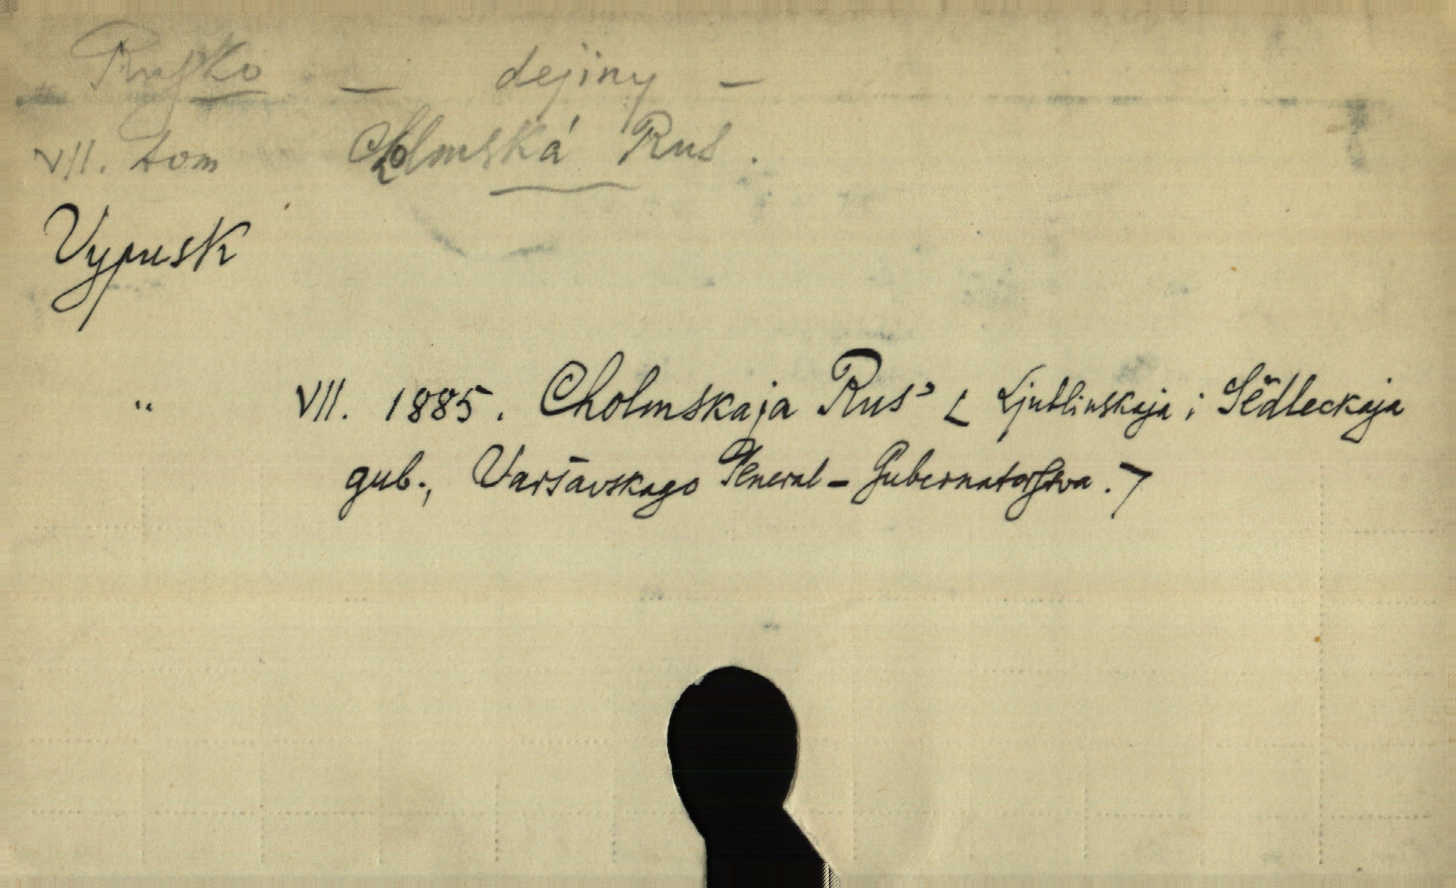 Rusko — dejiny —
VII. tom Cholmská Rus.
Vypusk
" VII. 1885. Cholmskaja Rus' [Ljublinskaja i Sědleckaja
gub., Varšavskago General-Gubernatorstva.]